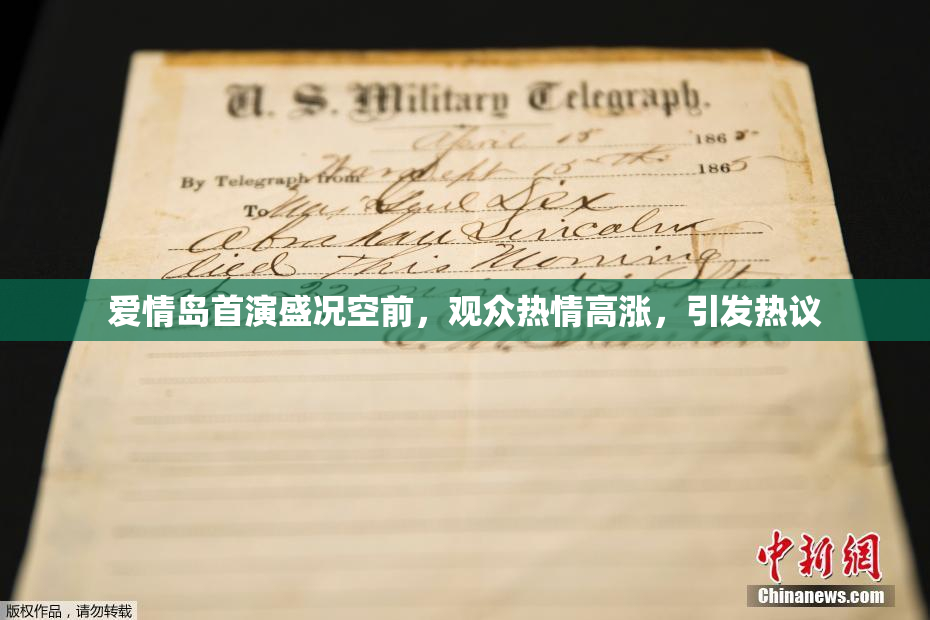 U. S. Military Telegraph.
April 15 1865
By Telegraph from War Dept 15th 1865
To Maj Genl Dix
Abraham Lincoln
died This Morning
22 minutes after
爱情岛首演盛况空前，观众热情高涨，引发热议
E. M. Stanton
中新網
Chinanews.com
版权作品，请勿转载